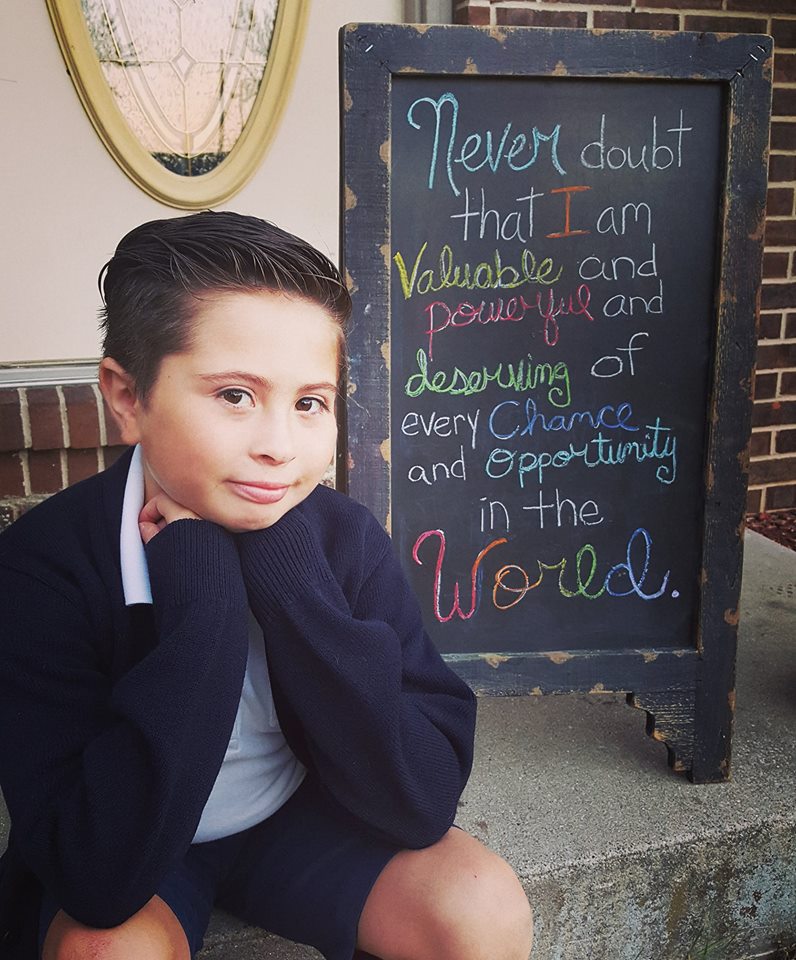 Never doubt
that I am
Valuable and
powerful and
deserving of
every Chance
and opportunity
in the
World.